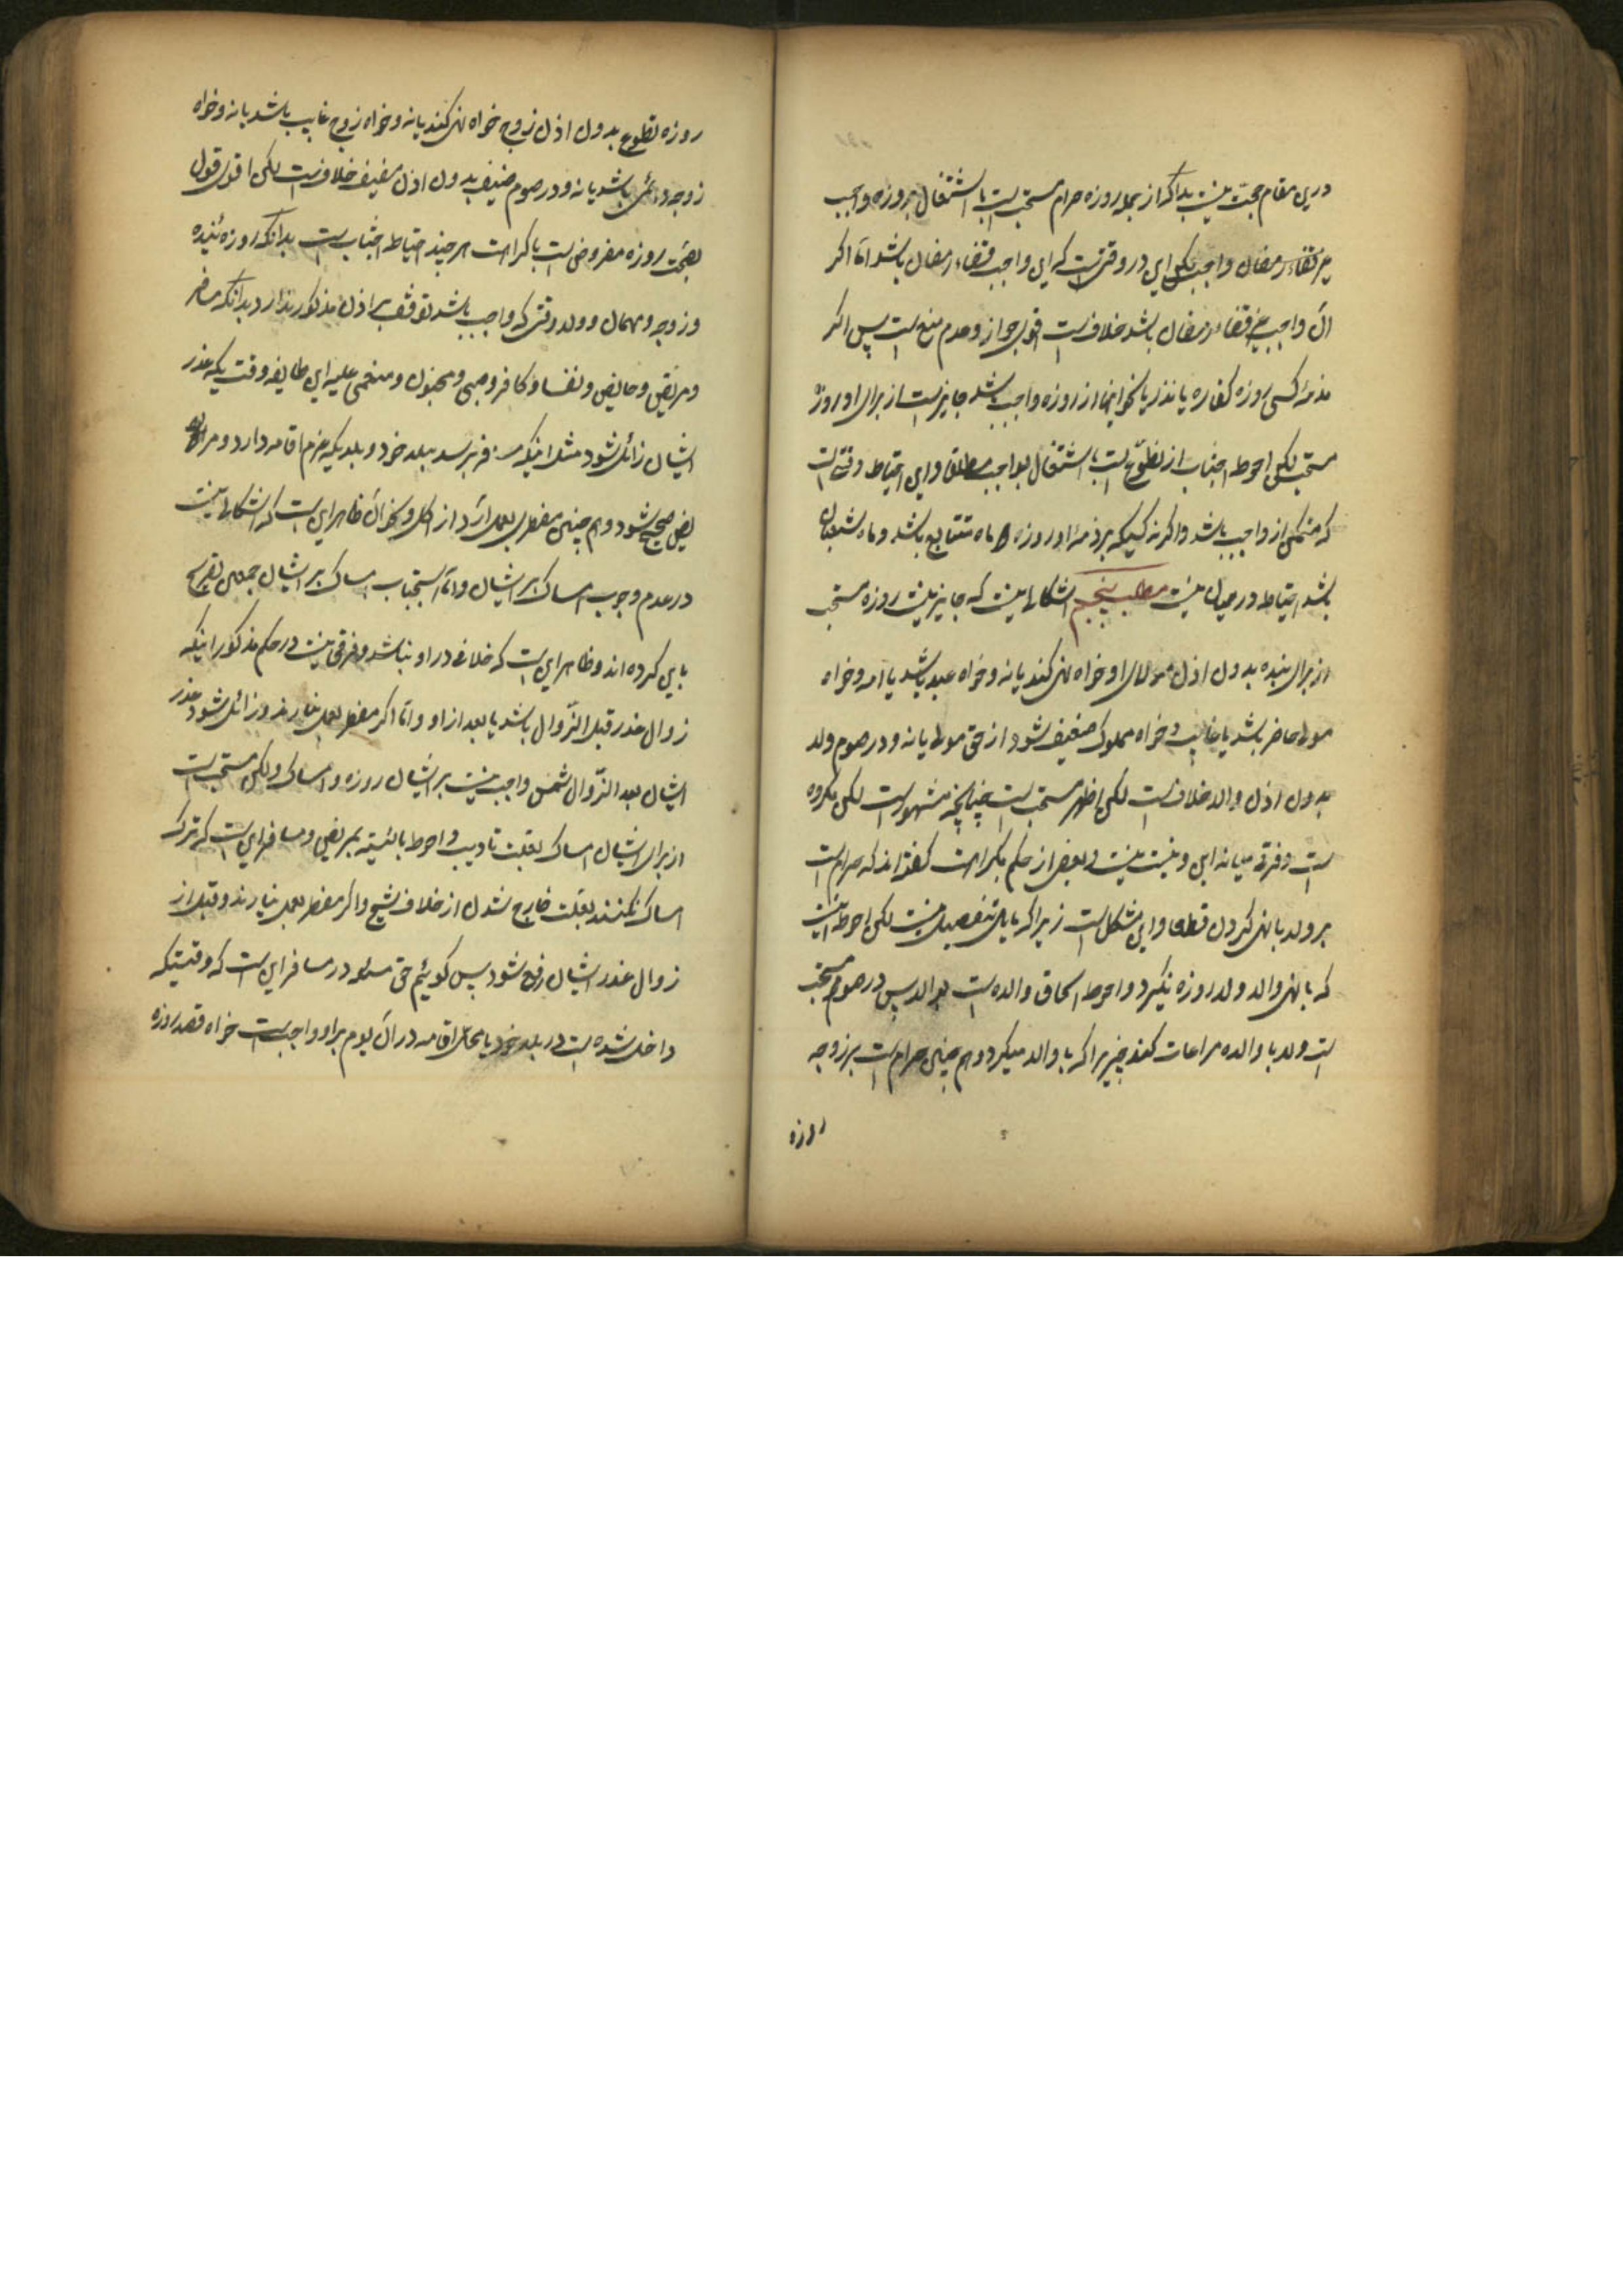 درین مقام حجت نیست بدانکه از جمله روزه حرام مستحب است با اشتغال بروزه واجب
واجب لکن این در وقتی است که این واجب قضاء رمضان باشد اما اگر
آن واجب غیر قضاء رمضان باشد خلافست اقوی جواز و عدم منع است پس اگر
کسی روزه کفاره یا نذر یا نحو اینها از روزه واجب باشد جایز است از برای او روزه
مستحب لکن احوط اجتناب از تطوع است با اشتغال بواجب مطلقا و این احتیاط وقتی است
که متمکن از واجب باشد و اگر نه کسیکه بر ذمه او روزه دو ماه متتابع باشد و ماه شعبان
باشد احتیاط در میان نیست مطلب پنجم اشکالی نیست که جایز نیست روزه مستحب
از برای بنده بدون اذن مولای او خواه نهی کند یا نه و خواه عبد باشد یا امه و خواه
مولی حاضر باشد یا غایب و خواه مملوک ضعیف شود از حق مولی یا نه و در صوم ولد
بدون اذن والد خلافست لکن اظهر مستحب است چنانچه مشهور است لکن مکروه
است و فرقی میانه ابن و بنت نیست و بعضی از حکم بکراهت گفته‌اند که حرام است
بر ولد با نهی کردن قطعا و این مشکل است زیرا که قایل بتفصیل نیست لکن احوط اینست
که با نهی والد ولد روزه نگیرد و احوط الحاق والده است بوالد پس در صوم مستحب
است ولد با والده مراعات کند چیزیرا که با والد میکرد و هم چنین حرام است بر زوجه
روزه
روزه تطوع بدون اذن زوج خواه نهی کند یا نه و خواه زوج غایب باشد یا نه و خواه
زوجه دائمی باشد یا نه و در صوم ضیف بدون اذن مضیف خلافست لکن اقوی قول
بصحت روزه مفروض است با کراهت هر چند احتیاط اجتناب است بدانکه روزه بنده
و زوجه و مهمان و ولد وقتی که واجب باشد توقف بر اذن مذکور ندارد بدانکه مسافر
و مریض و حایض و نفسا و کافر و صبی و مجنون و مغمی علیه این طایفه وقت یکه عذر
ایشان زائل شود مثل اینکه مسافر برسد ببلد خود و بلدیکه عزم اقامه دارد و مر
یض صحیح شود و هم چنین مفطری بعمل آرد از اکل و نحو آن ظاهر این است که اشکالی نیست
در عدم وجوب امساک بر ایشان و اما استحباب امساک بر ایشان جمعی تصریح
باین کرده‌اند و ظاهر این است که خلافی در او نباشد و فرقی نیست در حکم مذکور اینکه
زوال عذر قبل الزوال باشد یا بعد از او و اما اگر مفطر بعمل نیارند و زائل شود عذر
ایشان بعد الزوال شمس واجب نیست بر ایشان روزه و امساک و لکن مستحب است
از برای ایشان امساک بعلت تادیب و احوط بالنسبه بمریض و مسافر این است که ترک
امساک نکنند بعلت خارج شدن از خلاف شیخ و اگر مفطر بعمل نیارند و قبل از
زوال عذر ایشان رفع شود پس گوئیم حق مسئله در مسافر این است که وقتیکه
داخل شده است در بلد خود یا محل اقامه در آن یوم بر او واجب است خواه قصد روزه